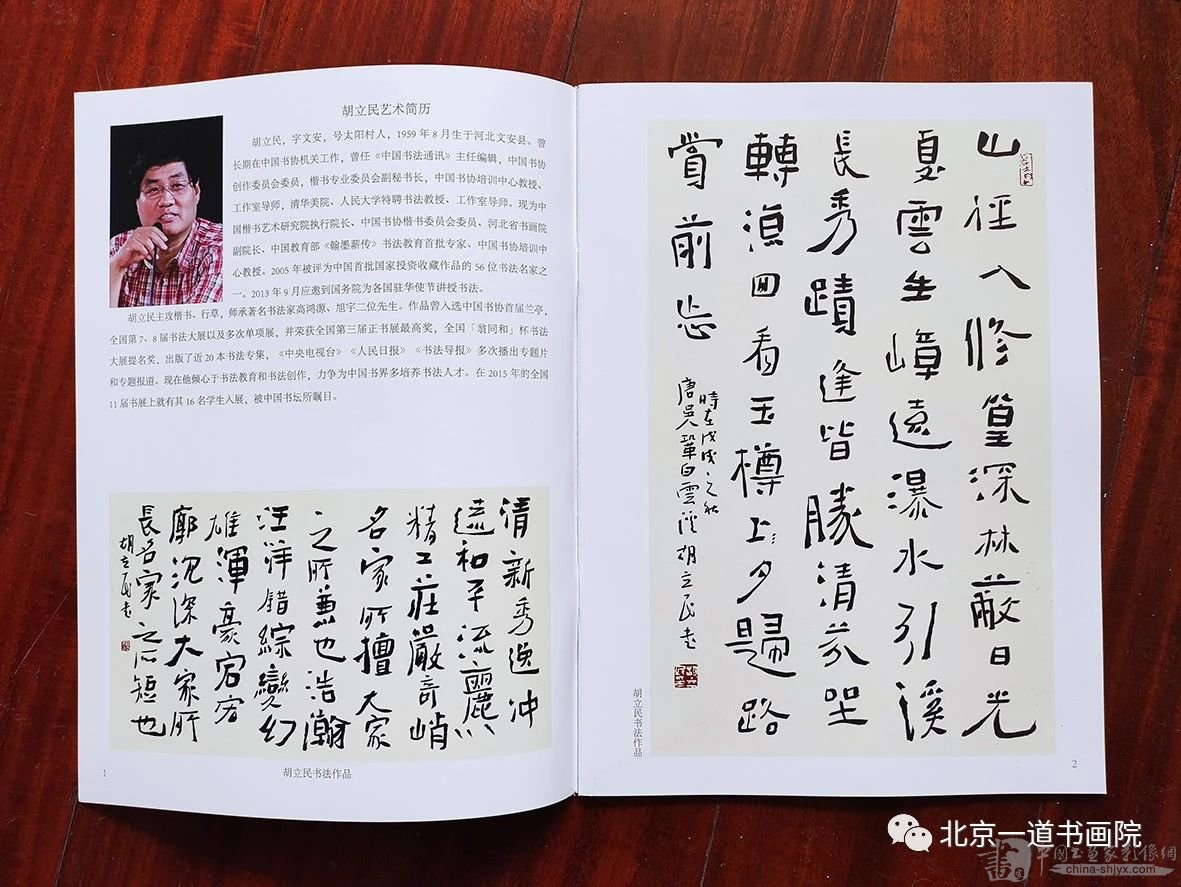 胡立民艺术简历
胡立民，字文安，号太阳村人，1959 年 8 月生于河北文安县。曾
长期在中国书协机关工作，曾任《中国书法通讯》主任编辑，中国书协
创作委员会委员，楷书专业委员会副秘书长，中国书协培训中心教授、
工作室导师，清华美院、人民大学特聘书法教授、工作室导师。现为中
国楷书艺术研究院执行院长、中国书协楷书委员会委员、河北省书画院
副院长、中国教育部《翰墨薪传》书法教育首批专家、中国书协培训中
心教授。2005 年被评为中国首批国家投资收藏作品的 56 位书法名家之
一。2013 年 9 月应邀到国务院为各国驻华使节讲授书法。
胡立民主攻楷书、行草，师承著名书法家高鸿源、旭宇二位先生。作品曾入选中国书协首届兰亭，
全国第 7、8 届书法大展以及多次单项展，并荣获全国第三届正书展最高奖，全国「翁同和」杯书法
大展提名奖，出版了近 20 本书法专集，《中央电视台》《人民日报》《书法导报》多次播出专题片
和专题报道。现在他倾心于书法教育和书法创作，力争为中国书界多培养书法人才。在 2015 年的全国
11 届书展上就有其 16 名学生入展，被中国书坛所瞩目。
清新秀逸冲
遠和平流麗
精工莊嚴奇峭
名家所擅大家
之所兼也浩瀚
汪洋錯綜變幻
雄渾豪宕宏
廓沉深大家所
長名家之所短也
胡立民书
1
胡立民书法作品
山徑入修篁深林蔽日光
夏雲生嶂遠瀑水引溪
長秀蹟逢皆勝清芬坐
轉涼回看玉樽上夕歸路
賞前忘
時在戊戌之秋
唐吳鞏白雲溪胡立民书
胡立民书法作品
2
北京一道书画院
中国书画家影像网
china-shjyx.com